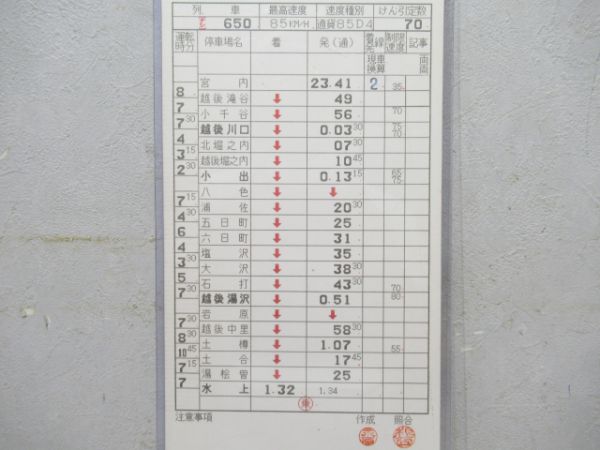 列 車 最高速度 速度種別 けん引定数
650 85KM/H 通貨85D4 70
運転時分 停車場名 着 発(通) 着発線 制限速度 記事
現車 両
換算 両
宮内 23.41 2 35
8
越後滝谷 ↓ 49
7
小千谷 ↓ 56 70
7 30
越後川口 ↓ 0.03 30 75 70
4
北堀之内 ↓ 07 30
3 15
越後堀之内 ↓ 10 45
2 30
小出 ↓ 0.13 15 65 75
八色 ↓ ↓
7 15
浦佐 ↓ 20 30
4 30
五日町 ↓ 25
6
六日町 ↓ 31
4
塩沢 ↓ 35
3 30
大沢 ↓ 38 30
5
石打 ↓ 43 30 70
7 30
越後湯沢 ↓ 0.51 80
岩原 ↓ ↓
7 30
越後中里 ↓ 58 30
8 30
土樽 ↓ 1.07 55
10 45
土合 ↓ 17 45
7 15
湯桧曽 ↓ 25
7
水上 1.32 1.34
乗
注意事項 作成 照合